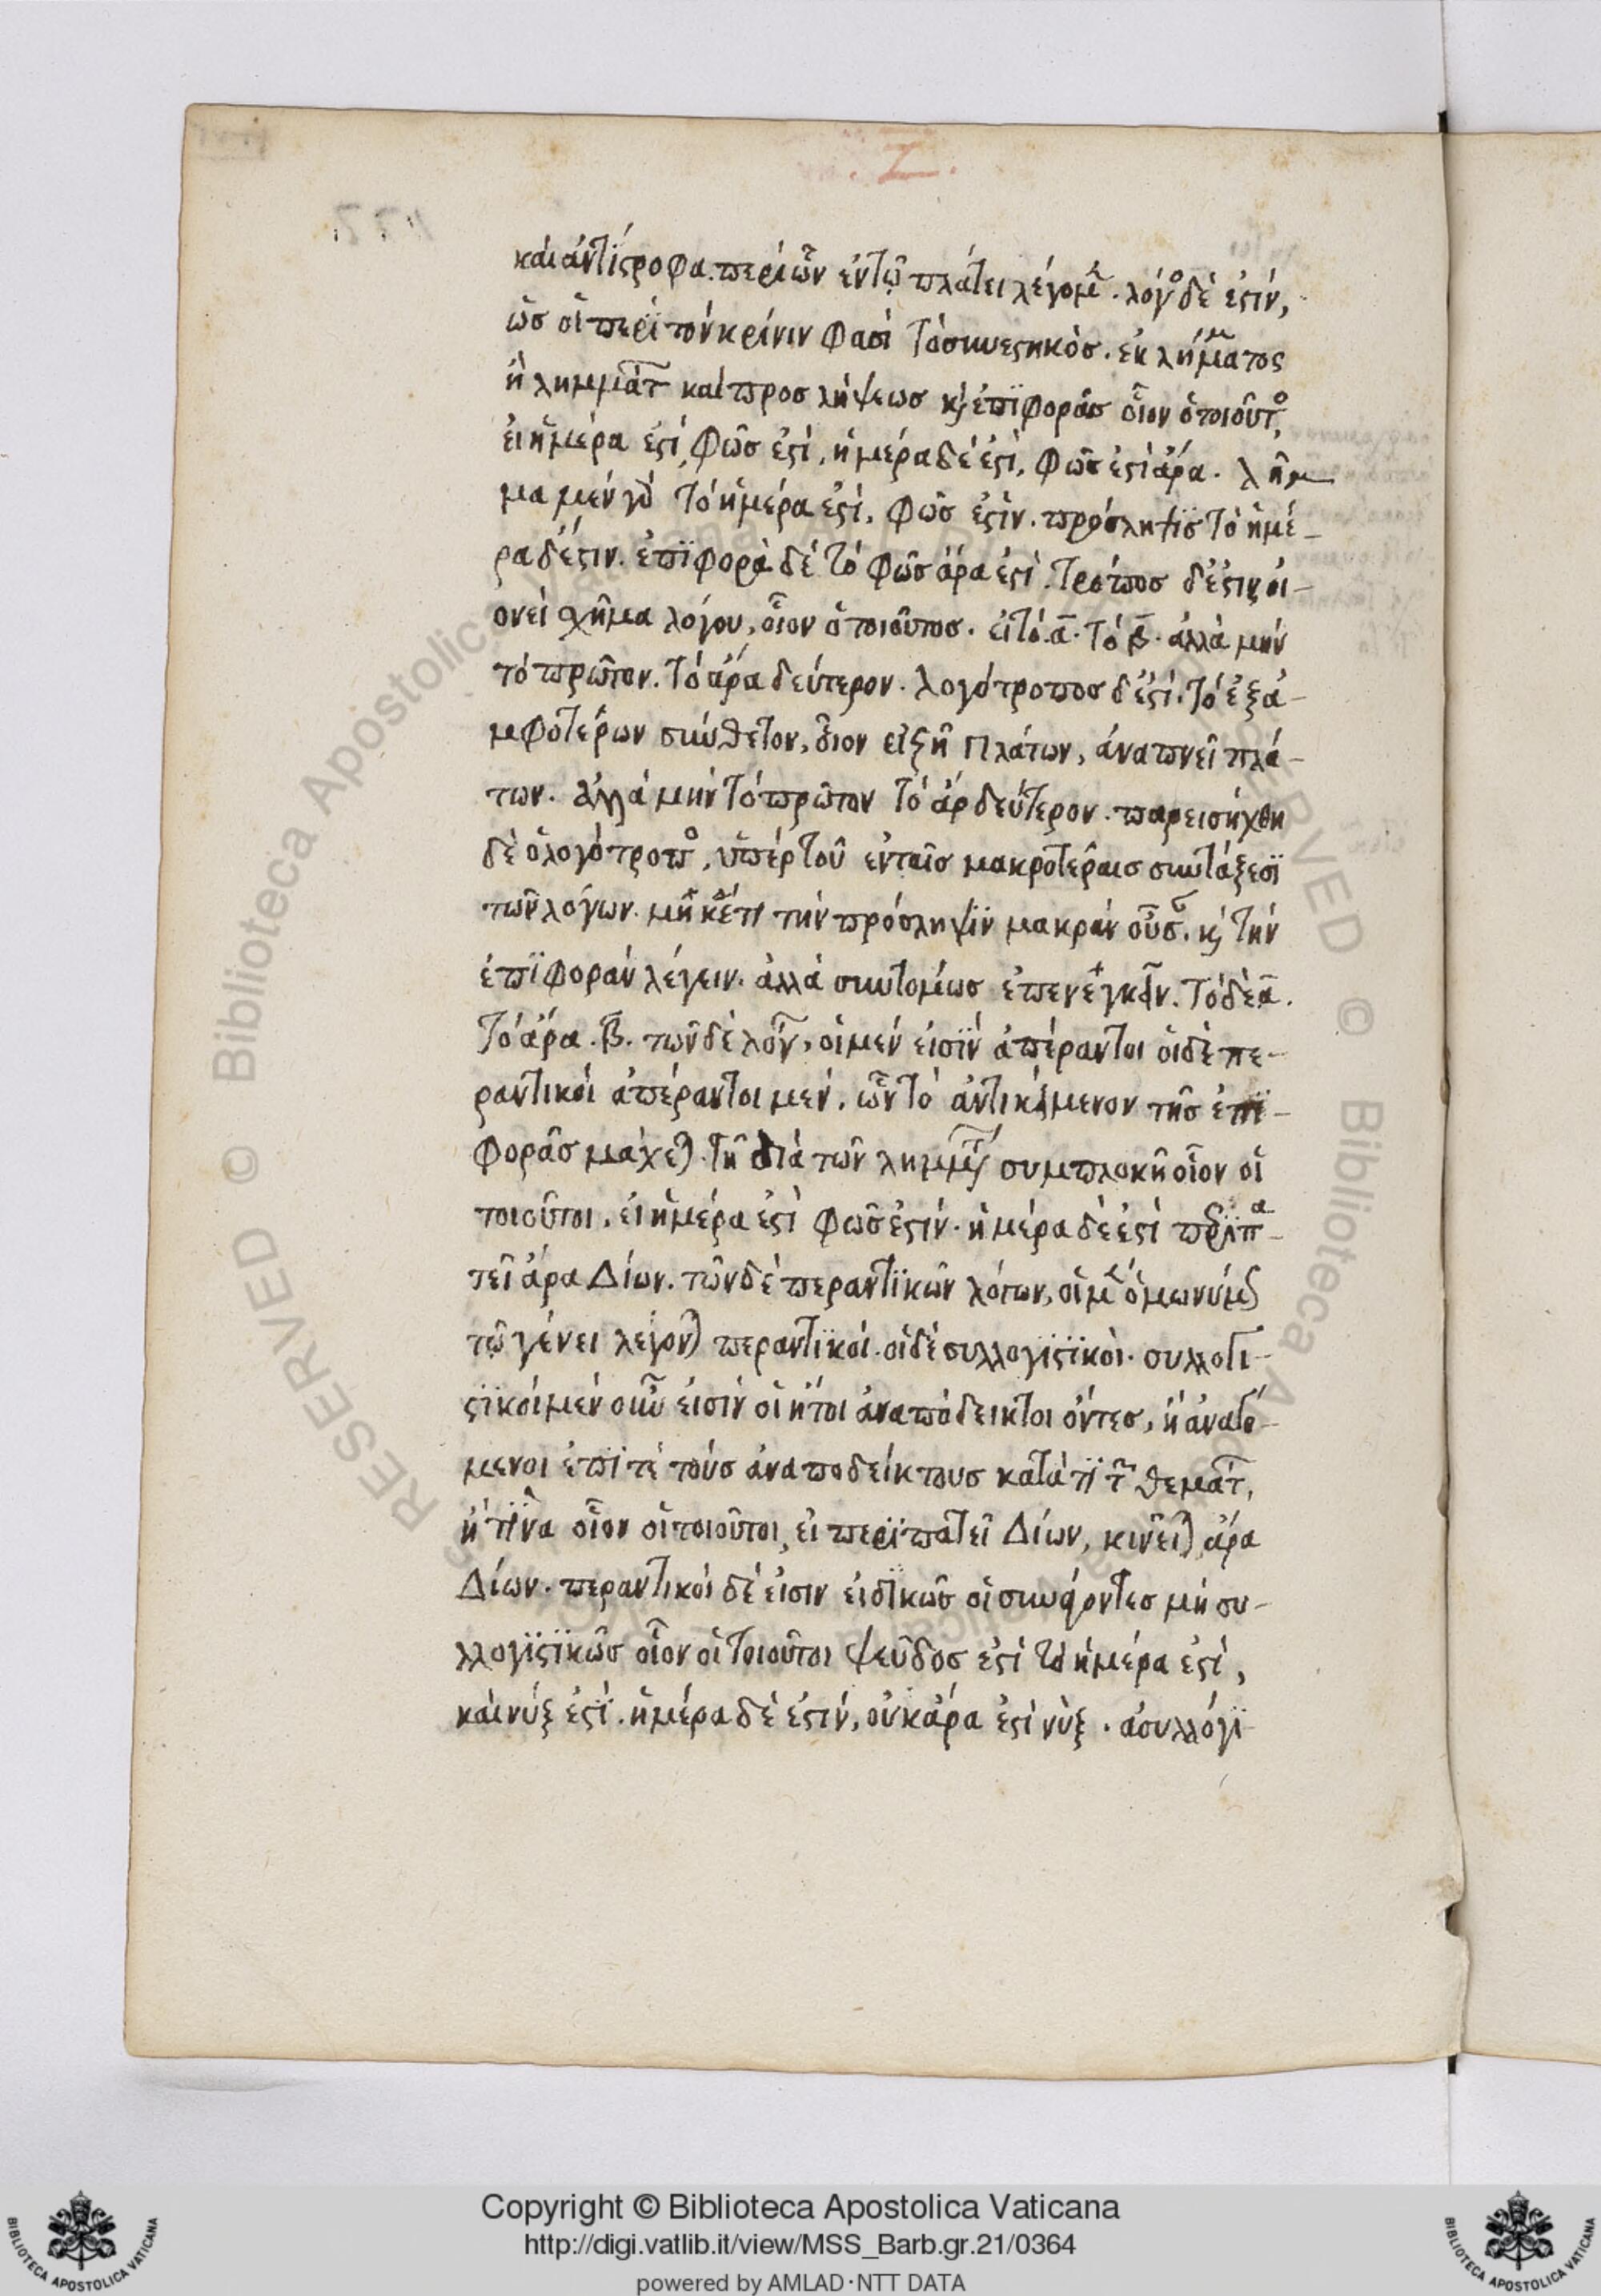 .Ζ.
καὶ ἀντίστροφα. περὶ ὧν ἐν τῷ πλάτει λέγομεν. λόγος δέ ἐστιν,
ὡς οἱ περὶ τὸν κρίνιν φασὶ τὸ συνεστηκὸς. ἐκ λήμματος
ἢ λημμάτων καὶ προσλήψεως καὶ ἐπιφορᾶς οἷον ὁ τοιοῦτος,
εἰ ἡμέρα ἐστί, φῶς ἐστί, ἡμέρα δέ ἐστί, φῶς ἐστὶ ἄρα. λῆμ
μα μὲν γὰρ τὸ ἡμέρα ἐστί, φῶς ἐστίν. πρόσληψις τὸ ἡμέ-
ρα δ' ἔστιν. ἐπιφορὰ δὲ τὸ φῶς ἄρα ἐστί. τρόπος δ' ἐστιν οἱ-
ονεὶ σχῆμα λόγου, οἷον ὁ τοιοῦτος. εἰ τὸ .α. τὸ β. ἀλλὰ μὴν
τὸ πρῶτον. τὸ ἄρα δεύτερον. λογότροπος δ' ἐστί. τὸ ἐξ ἀ-
μφοτέρων σύνθετον, οἷον εἰ ζῇ Πλάτων, ἀναπνεῖ πλά-
των. ἀλλὰ μὴν τὸ πρῶτον τὸ ἄρ δεύτερον. παρεισήχθη
δὲ ὁ λογότροπος, ὑπὲρ τοῦ ἐν ταῖς μακροτέραις συντάξεσι
τῶν λόγων. μηκέτι τὴν πρόσληψιν μακρὰν οὖσαν. καὶ τὴν
ἐπιφορὰν λέγειν. ἀλλὰ συντομίως ἐπενεγκεῖν. τὸ δὲ α.
τὸ ἄρα .β. τῶν δὲ λόγων, οἱ μέν εἰσιν ἀπέραντοι οἱ δὲ πε-
ραντικοί ἀπέραντοι μέν, ὧν τὸ ἀντικείμενον τῆς ἐπι-
φορᾶς μάχεται. τῇ διὰ τῶν λημμάτων συμπλοκῇ οἷον οἱ
τοιοῦτοι, εἰ ἡμέρα ἐστὶ φῶς ἐστίν. ἡμέρα δὲ ἐστὶ περιπα-
τεῖ ἄρα Δίων. τῶν δὲ περαντικῶν λόγων, οἱ μὲν ὁμωνύμως
τῷ γένει λέγονται περαντικοί. οἱ δὲ συλλογιστικοί. συλλογι-
στικοὶ μὲν οὖν εἰσὶν οἱ ἤτοι ἀναπόδεικτοι ὄντες, ἢ ἀναγό-
μενοι ἐπί τε τοὺς ἀναποδείκτους κατά τι τῶν θεμάτων,
ἢ τινα οἷον οἱ τοιοῦτοι, εἰ περιπατεῖ Δίων, κινεῖται ἄρα
Δίων. περαντικοὶ δέ εἰσιν εἰδικῶς οἱ συνάγοντες μὴ συ-
λλογιστικῶς οἷον οἱ τοιοῦτοι ψεῦδος ἐστὶ τὸ ἡμέρα ἐστί,
καὶ νύξ ἐστί. ἡμέρα δέ ἐστίν, οὐκ ἄρα ἐστὶ νύξ. ἀσυλλόγι
Copyright © Biblioteca Apostolica Vaticana
http://digi.vatlib.it/view/MSS_Barb.gr.21/0364
powered by AMLAD·NTT DATA